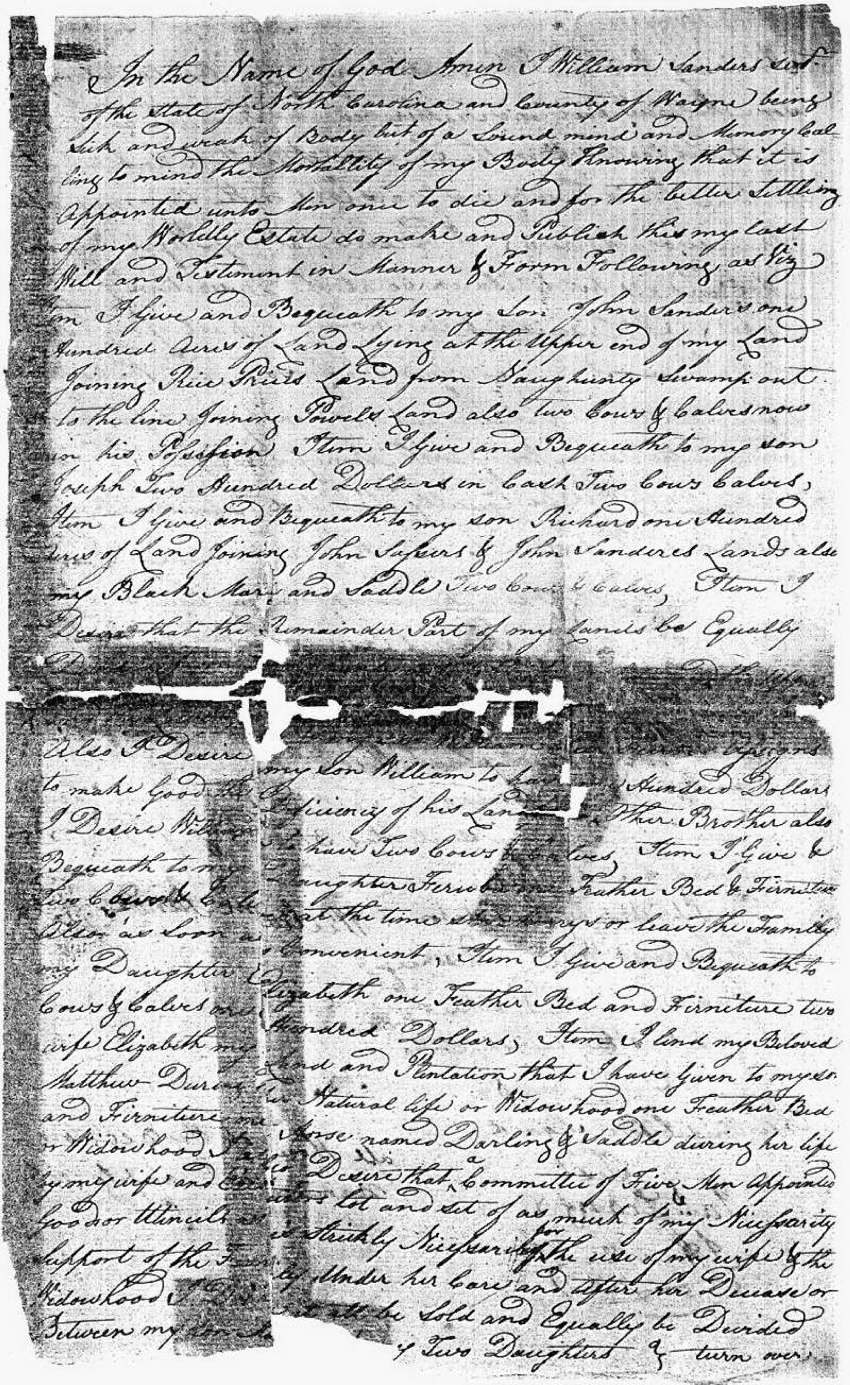 In the Name of God Amen I William Sanders Senr.
of the State of North Carolina and County of Wayne being
Sick and weak of Body but of a Sound mind and Memory Cal-
ling to mind the Mortallity of my Body Knowing that it is
Appointed unto Men once to die and for the better Settling
of my Worldly Estate do make and Publish this my last
Will and Testiment in Manner & Form Following as Viz
I Give and Bequeath to my Son John Sanders one
Hundred Acres of Land Lying at the Upper end of my Land
Joining Rice Prices Land from Naughunty Swamp out
to the line Joining Powels Land also two Cows & Calves now
in his Possission Itim I Give and Bequeath to my son
Joseph Two Hundred Dollars in Cash Two Cows Calves,
Itim I Give and Bequeath to my son Richard one Hundred
acres of Land Joining John Sassers & John Sanderes Lands also
my Black Mare and Saddle Two Cows & Calves, Itim I
Desire that the Remainder Part of my Lands be Equally
Also I Desire my son William to Hundred Dollars
to make Good the Dificiency of his Land other Brother also
I Desire William to have Two Cows & Calves, Itim I Give &
Bequeath to my Daughter Feruba one Feather Bed & Firniture
Two Cows & Calves at the time she or leave the Family
Also as Soon as Convenient, Itim I Give and Bequeath to
my Daughter Elizabeth one Feather Bed and Firniture two
Cows & Calves one Hundred Dollars, Itim I lend my Beloved
wife Elizabeth my Land and Plentation that I have Given to my son
Matthew During her Natural life or Widowhood one Feather Bed
and Firniture one Horse named Darling & Saddle during her life
or Widowhood I also Desire that a Committee of Five Men Appointed
by my wife and lot and set of as much of my Nicessarity
Good or Utincils as is Strickly Nicessarity for the use of my wife & the
Support of the Family Under her Care and after her Decease or
Widowhood I Desire it all be Sold and Equally be Divided
Between my son Two Daughters & turn over